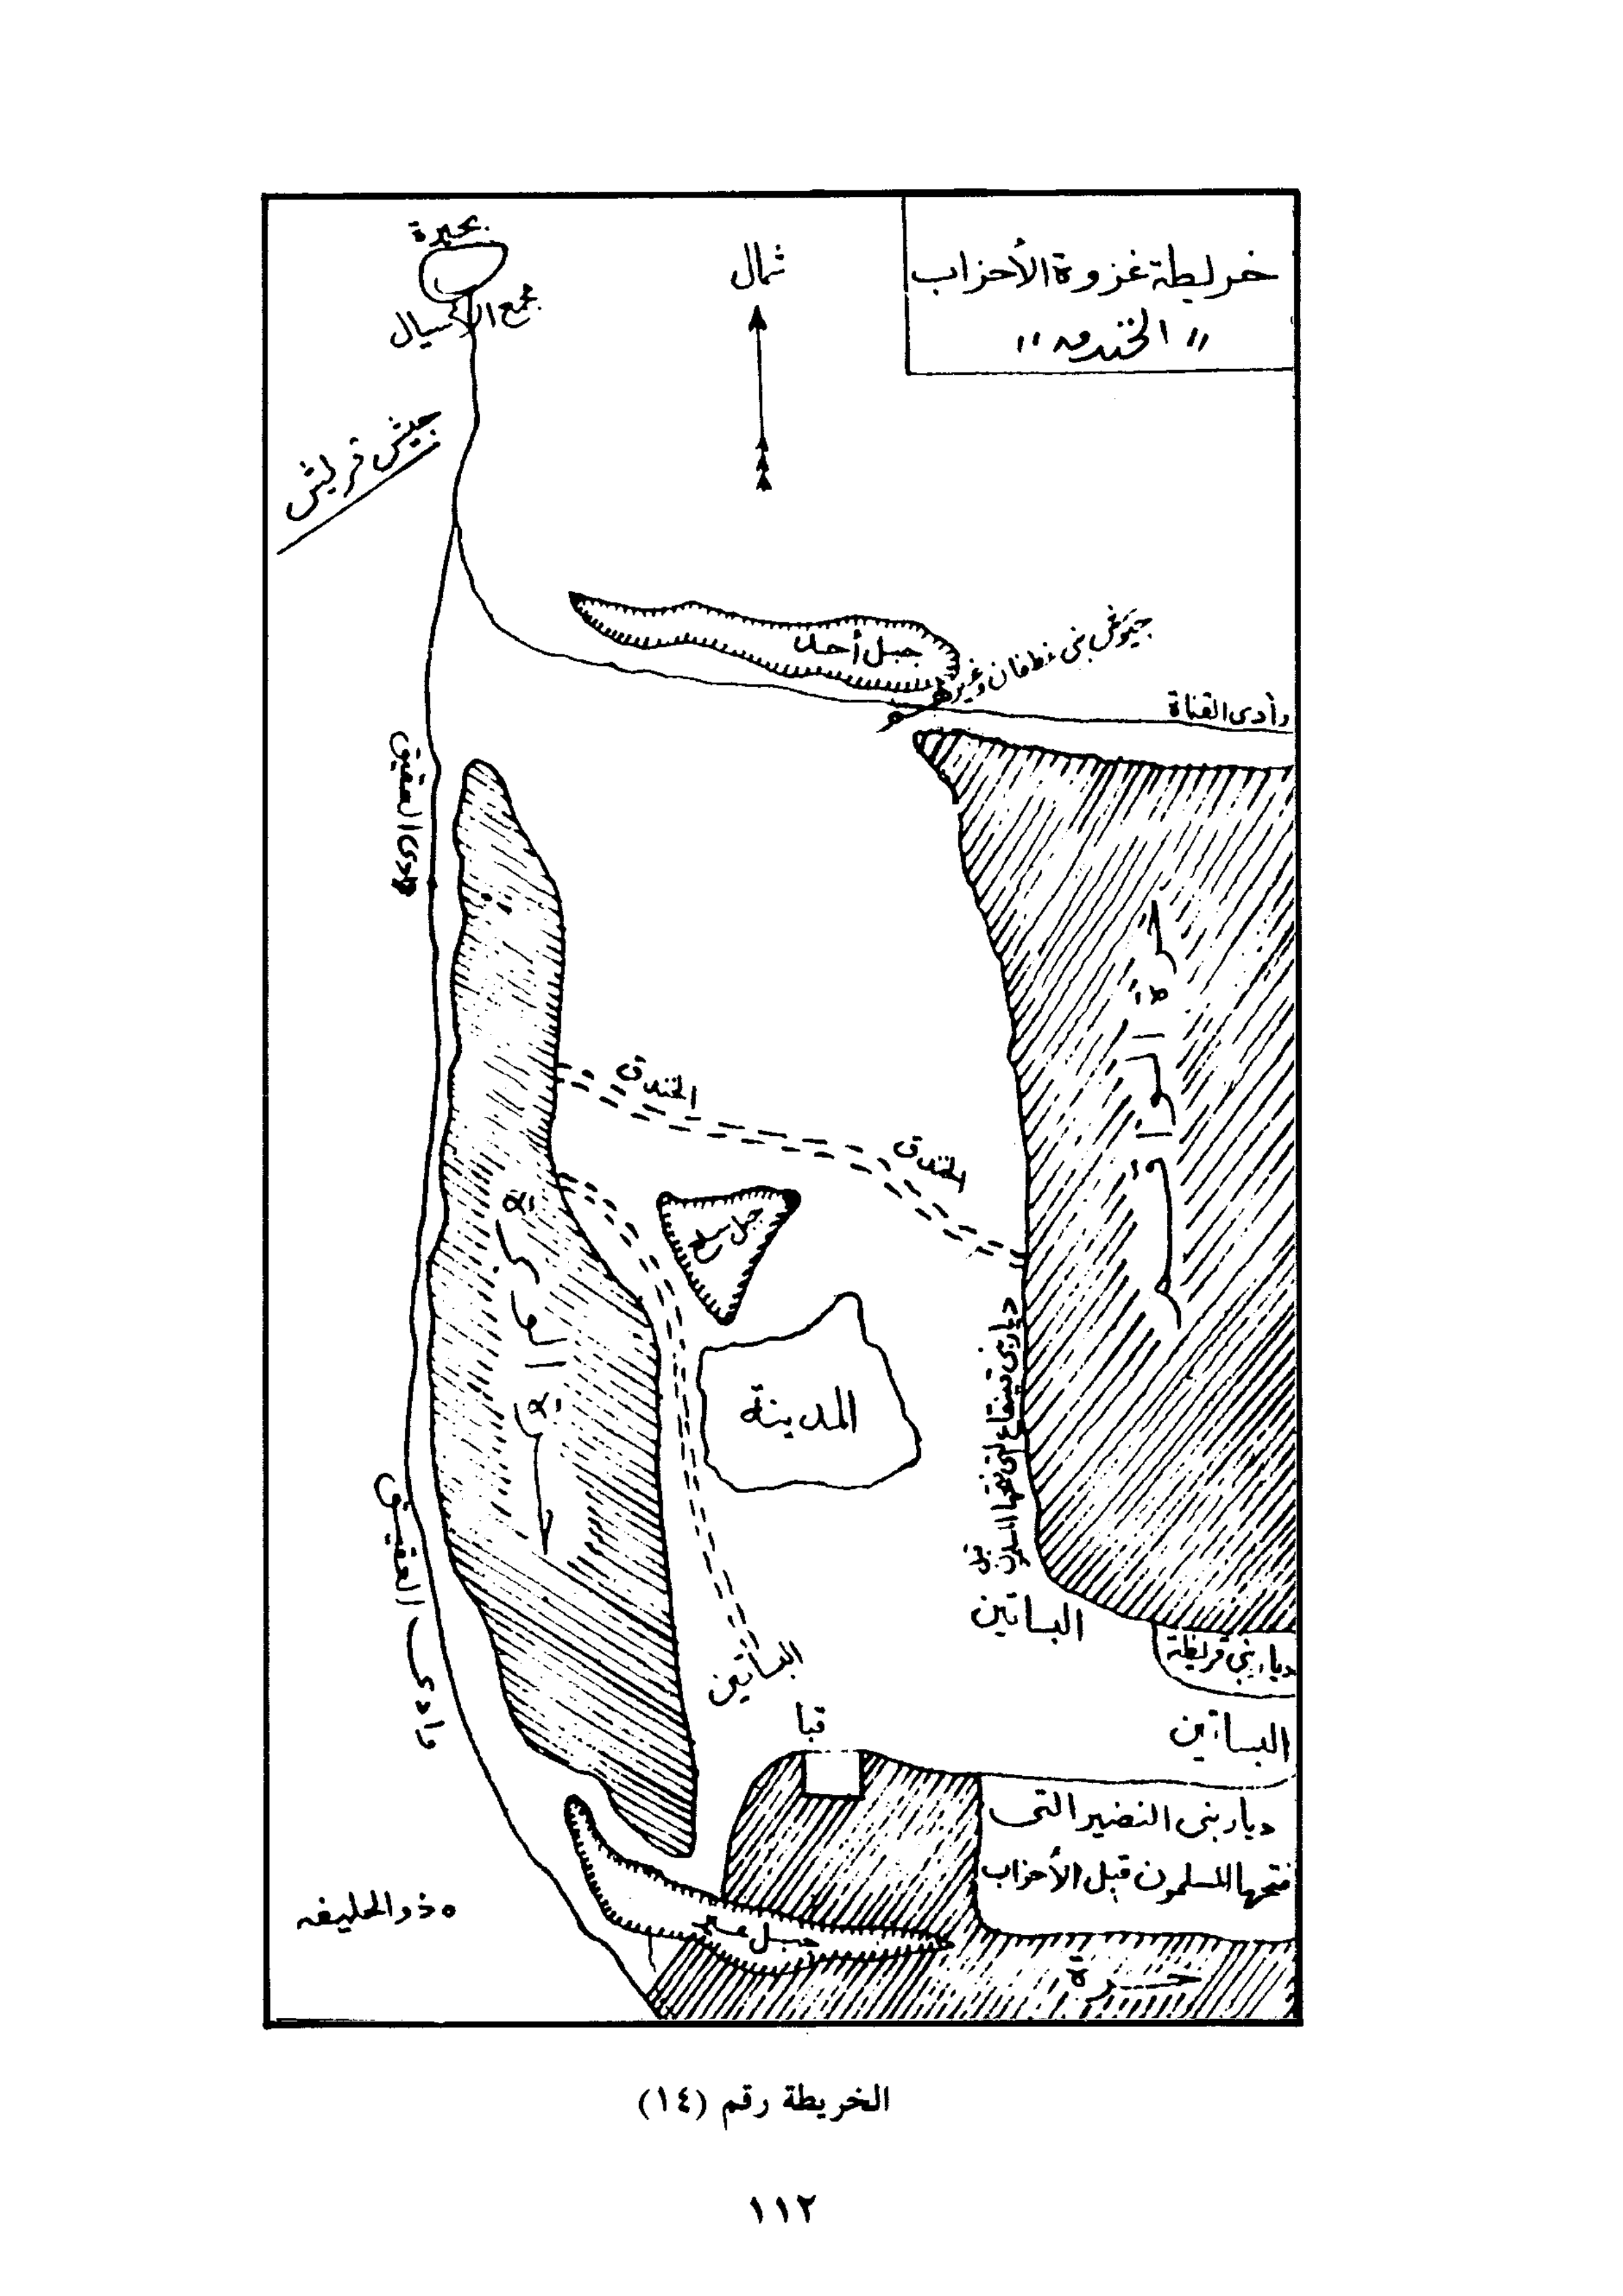 خريطة غزوة الأحزاب
" الخندق "
شمال
بحيرة
مجمع الأسيال
جيش قريش
جبل أحد
جيوش بني غطفان وغيرهم
وادى القناة
وادى العقيق
الخندق
الخندق
جبل سلع
المدينة
ديار بني قينقاع
البساتين
ديار بني قريظة
البساتين
البساتين
قبا
ديار بني النضير التى
فتحها المسلمون قبل الأحزاب
وادى العقيق
ذو الحليفه
جبل عير
حرة
الخريطة رقم (١٤)
١١٢